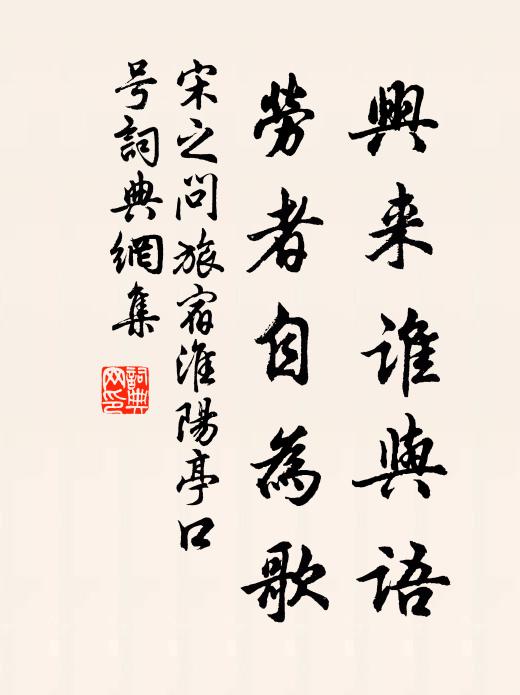 興来誰與語
勞者自為歌
宋之問旅宿淮陽亭口
号詞典網集
詞典網印